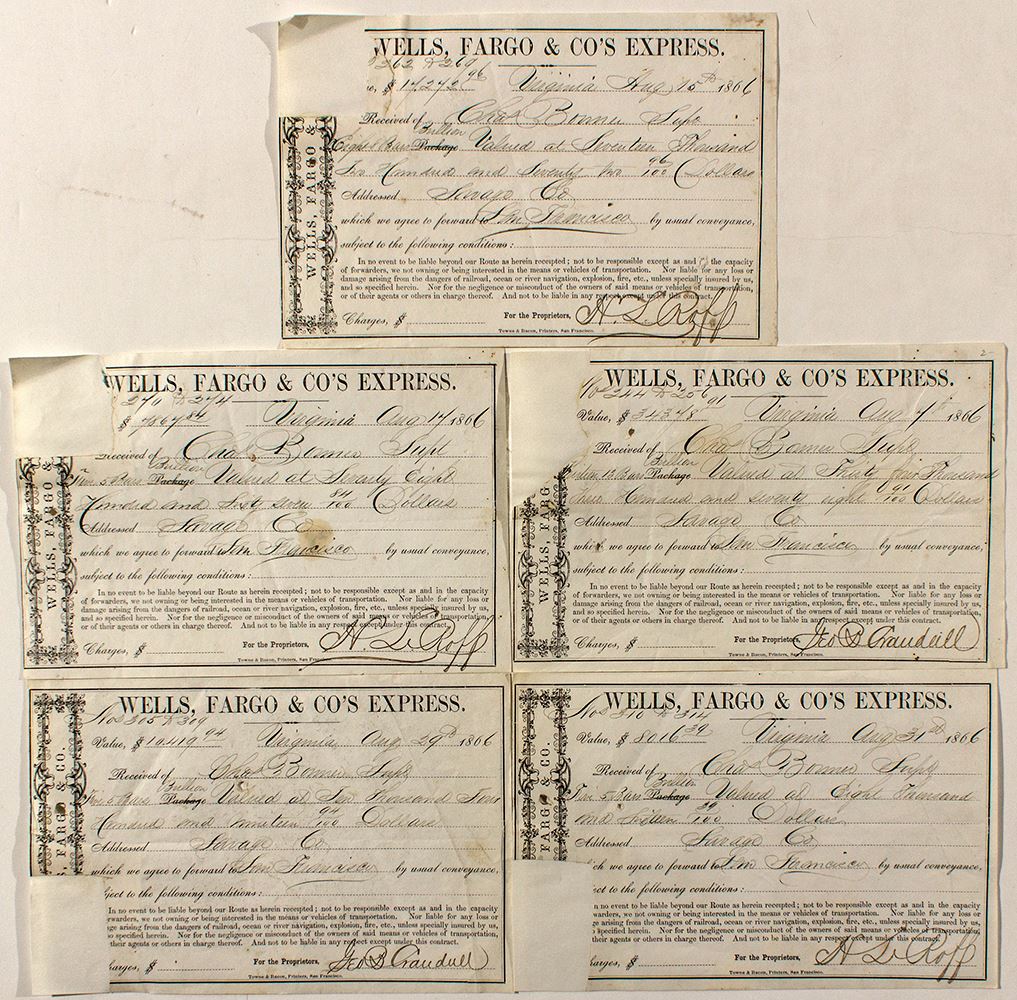 WELLS, FARGO & CO'S EXPRESS.
262 to 269
$ 17,272 96 Virginia Aug 15th 1866
Received of Chas Bonner Supt
Bullion
Eight Bars Package Valued at Seventeen Thousand
Two Hundred and Seventy two 96/100 Dollars
Addressed Savage Co
which we agree to forward to San Francisco by usual conveyance,
subject to the following conditions:
In no event to be liable beyond our Route as herein receipted; not to be responsible except as and in the capacity
of forwarders, we not owning or being interested in the means or vehicles of transportation. Nor liable for any loss or
damage arising from the dangers of railroad, ocean or river navigation, explosion, fire, etc., unless specially insured by us,
and so specified herein. Nor for the negligence or misconduct of the owners of said means or vehicles of transportation,
or of their agents or others in charge thereof. And not to be liable in any respect except under this contract.
Charges, $ For the Proprietors, H. L. Roff
Towne & Bacon, Printers, San Francisco.
WELLS, FARGO &
WELLS, FARGO & CO'S EXPRESS.
270 to 274
$ 7867 84 Virginia Aug 17 1866
Received of Chas Bonner Supt
Bullion
5 Bars Package Valued at Seventy Eight
Hundred and Sixty seven 84/100 Dollars
Addressed Savage Co
which we agree to forward to San Francisco by usual conveyance,
subject to the following conditions:
In no event to be liable beyond our Route as herein receipted; not to be responsible except as and in the capacity
of forwarders, we not owning or being interested in the means or vehicles of transportation. Nor liable for any loss or
damage arising from the dangers of railroad, ocean or river navigation, explosion, fire, etc., unless specially insured by us,
and so specified herein. Nor for the negligence or misconduct of the owners of said means or vehicles of transportation,
or of their agents or others in charge thereof. And not to be liable in any respect except under this contract.
Charges, $ For the Proprietors, H. L. Roff
Towne & Bacon, Printers, San Francisco.
WELLS, FARGO &
2
WELLS, FARGO & CO'S EXPRESS.
No 244 to 256
Value, $ 34378 91 Virginia Aug 7th 1866
Received of Chas Bonner Supt
Bullion
13 Bars Package Valued at Thirty four Thousand
Three Hundred and seventy eight 91/100 Dollars
Addressed Savage Co
which we agree to forward to San Francisco by usual conveyance,
subject to the following conditions:
In no event to be liable beyond our Route as herein receipted; not to be responsible except as and in the capacity
of forwarders, we not owning or being interested in the means or vehicles of transportation. Nor liable for any loss or
damage arising from the dangers of railroad, ocean or river navigation, explosion, fire, etc., unless specially insured by us,
and so specified herein. Nor for the negligence or misconduct of the owners of said means or vehicles of transportation,
or of their agents or others in charge thereof. And not to be liable in any respect except under this contract.
Charges, $ For the Proprietors, Geo B Crandall
Towne & Bacon, Printers, San Francisco.
WELLS, FARG
WELLS, FARGO & CO'S EXPRESS.
Nos 305 to 309
Value, $ 10419 94 Virginia Aug 29th 1866
Received of Chas Bonner Supt
Bullion
5 Bars Package Valued at Ten Thousand Four
Hundred and nineteen 94/100 Dollars
Addressed Savage Co
which we agree to forward to San Francisco by usual conveyance,
bject to the following conditions:
n no event to be liable beyond our Route as herein receipted; not to be responsible except as and in the capacity
rwarders, we not owning or being interested in the means or vehicles of transportation. Nor liable for any loss or
ge arising from the dangers of railroad, ocean or river navigation, explosion, fire, etc., unless specially insured by us,
so specified herein. Nor for the negligence or misconduct of the owners of said means or vehicles of transportation,
their agents or others in charge thereof. And not to be liable in any respect except under this contract.
harges, $ For the Proprietors, Geo B Crandall
Towne & Bacon, Printers, San Francisco.
FARGO & CO.
WELLS, FARGO & CO'S EXPRESS.
Nos 310 to 314
Value, $ 8016 39 Virginia Aug 31st 1866
Received of Chas Bonner Supt
Bullion
5 Bars Package Valued at Eight Thousand
and Sixteen 39/100 Dollars
Addressed Savage Co
ch we agree to forward to San Francisco by usual conveyance,
ect to the following conditions:
n no event to be liable beyond our Route as herein receipted; not to be responsible except as and in the capacity
warders, we not owning or being interested in the means or vehicles of transportation. Nor liable for any loss or
e arising from the dangers of railroad, ocean or river navigation, explosion, fire, etc., unless specially insured by us,
o specified herein. Nor for the negligence or misconduct of the owners of said means or vehicles of transportation,
their agents or others in charge thereof. And not to be liable in any respect except under this contract.
arges, $ For the Proprietors, H L Roff
Towne & Bacon, Printers, San Francisco.
FARGO & CO.